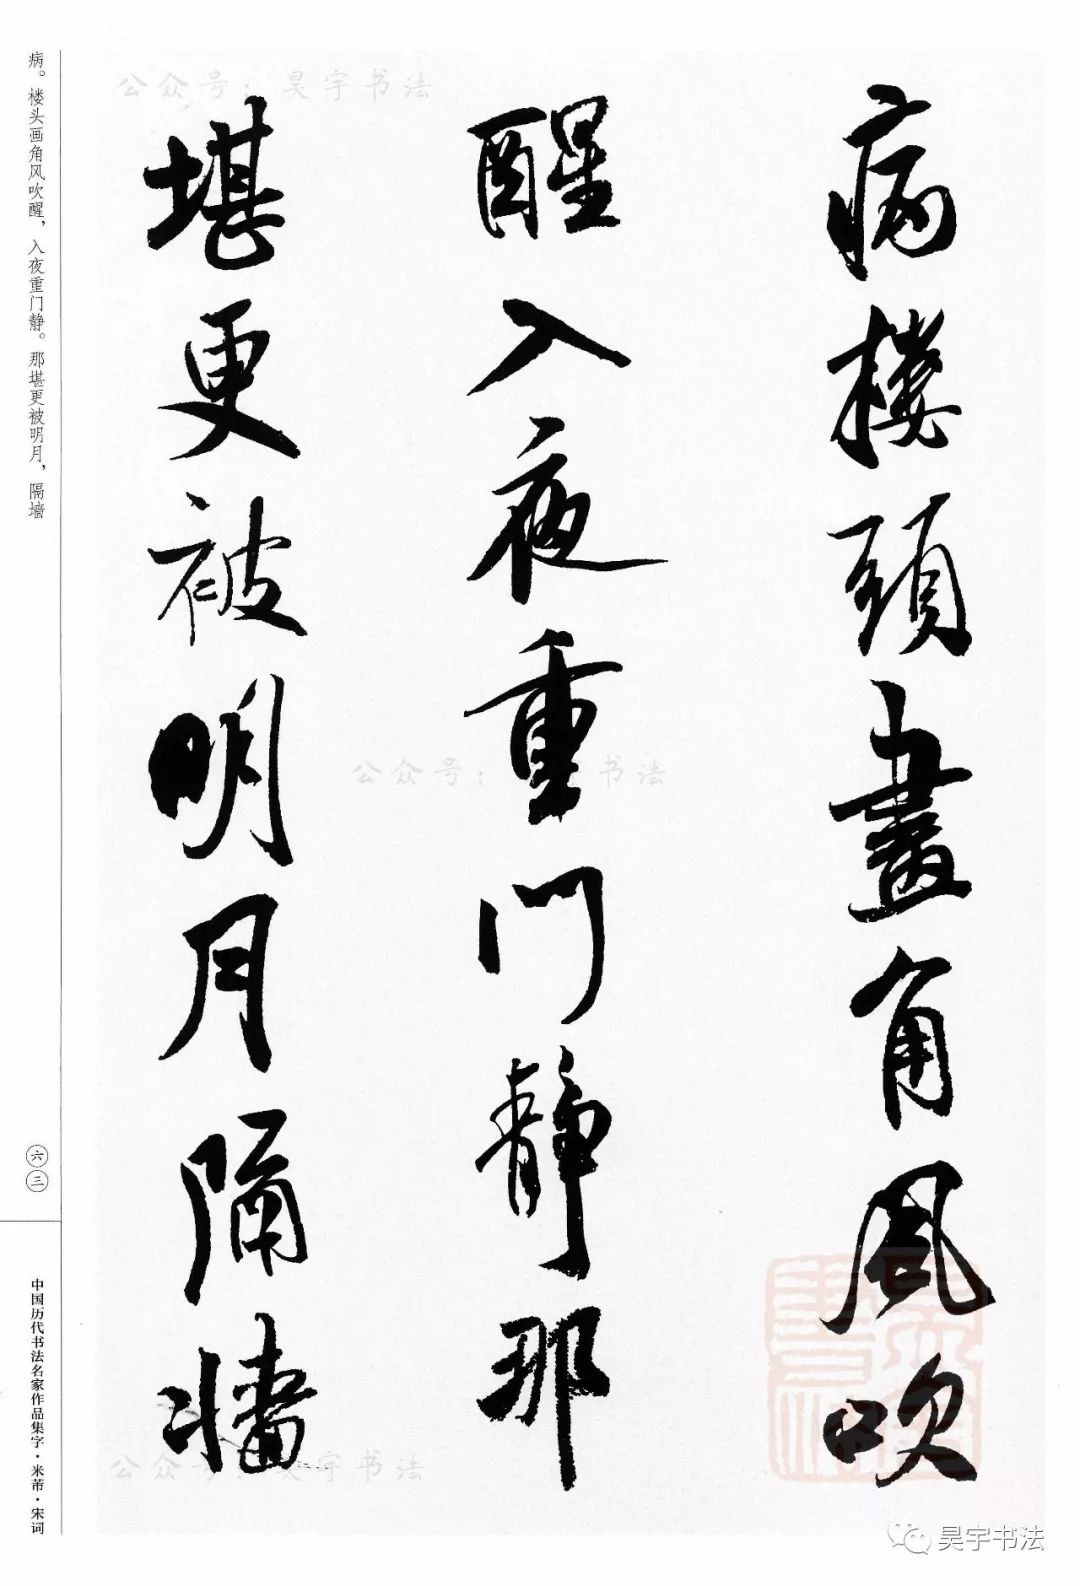 病樓頭畫角風吹
醒入夜重門靜那
堪更被明月隔墻
病。楼头画角风吹醒，入夜重门静。那堪更被明月，隔墙
六三
中国历代书法名家作品集字·米芾·宋词
公众号：昊宇书法
公众号： 书法
公众号：昊宇书法
昊宇书法